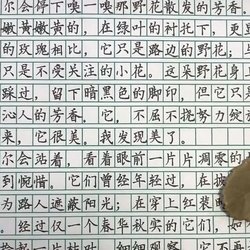 尔会停下嗅一嗅那野花散发的芳香。
嫩黄嫩黄的，在绿叶的衬托下，更显
的玫瑰相比，它只是路边的野花；
只是不受关注的小花。这朵野花身
踩过，留下暗黑色的脚印。但它只
沁人的芳香。它，不屈不挠努力绽
来，它很美。我发现美了。
尔会站着，看着眼前一片片凋零的
到惋惜。它们曾经年轻过，在
为路人遮蔽阳光；在穿上红装
。经过仅一个春华秋实的它们，如
拾起一片枯叶，细细观